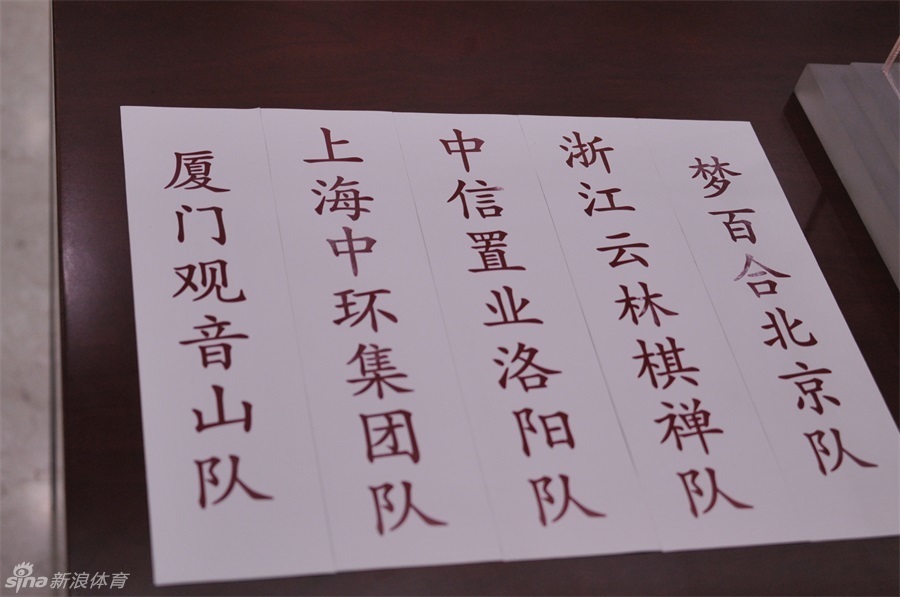 厦门观音山队
上海中环集团队
中信置业洛阳队
浙江云林棋禅队
梦百合北京队
sina新浪体育